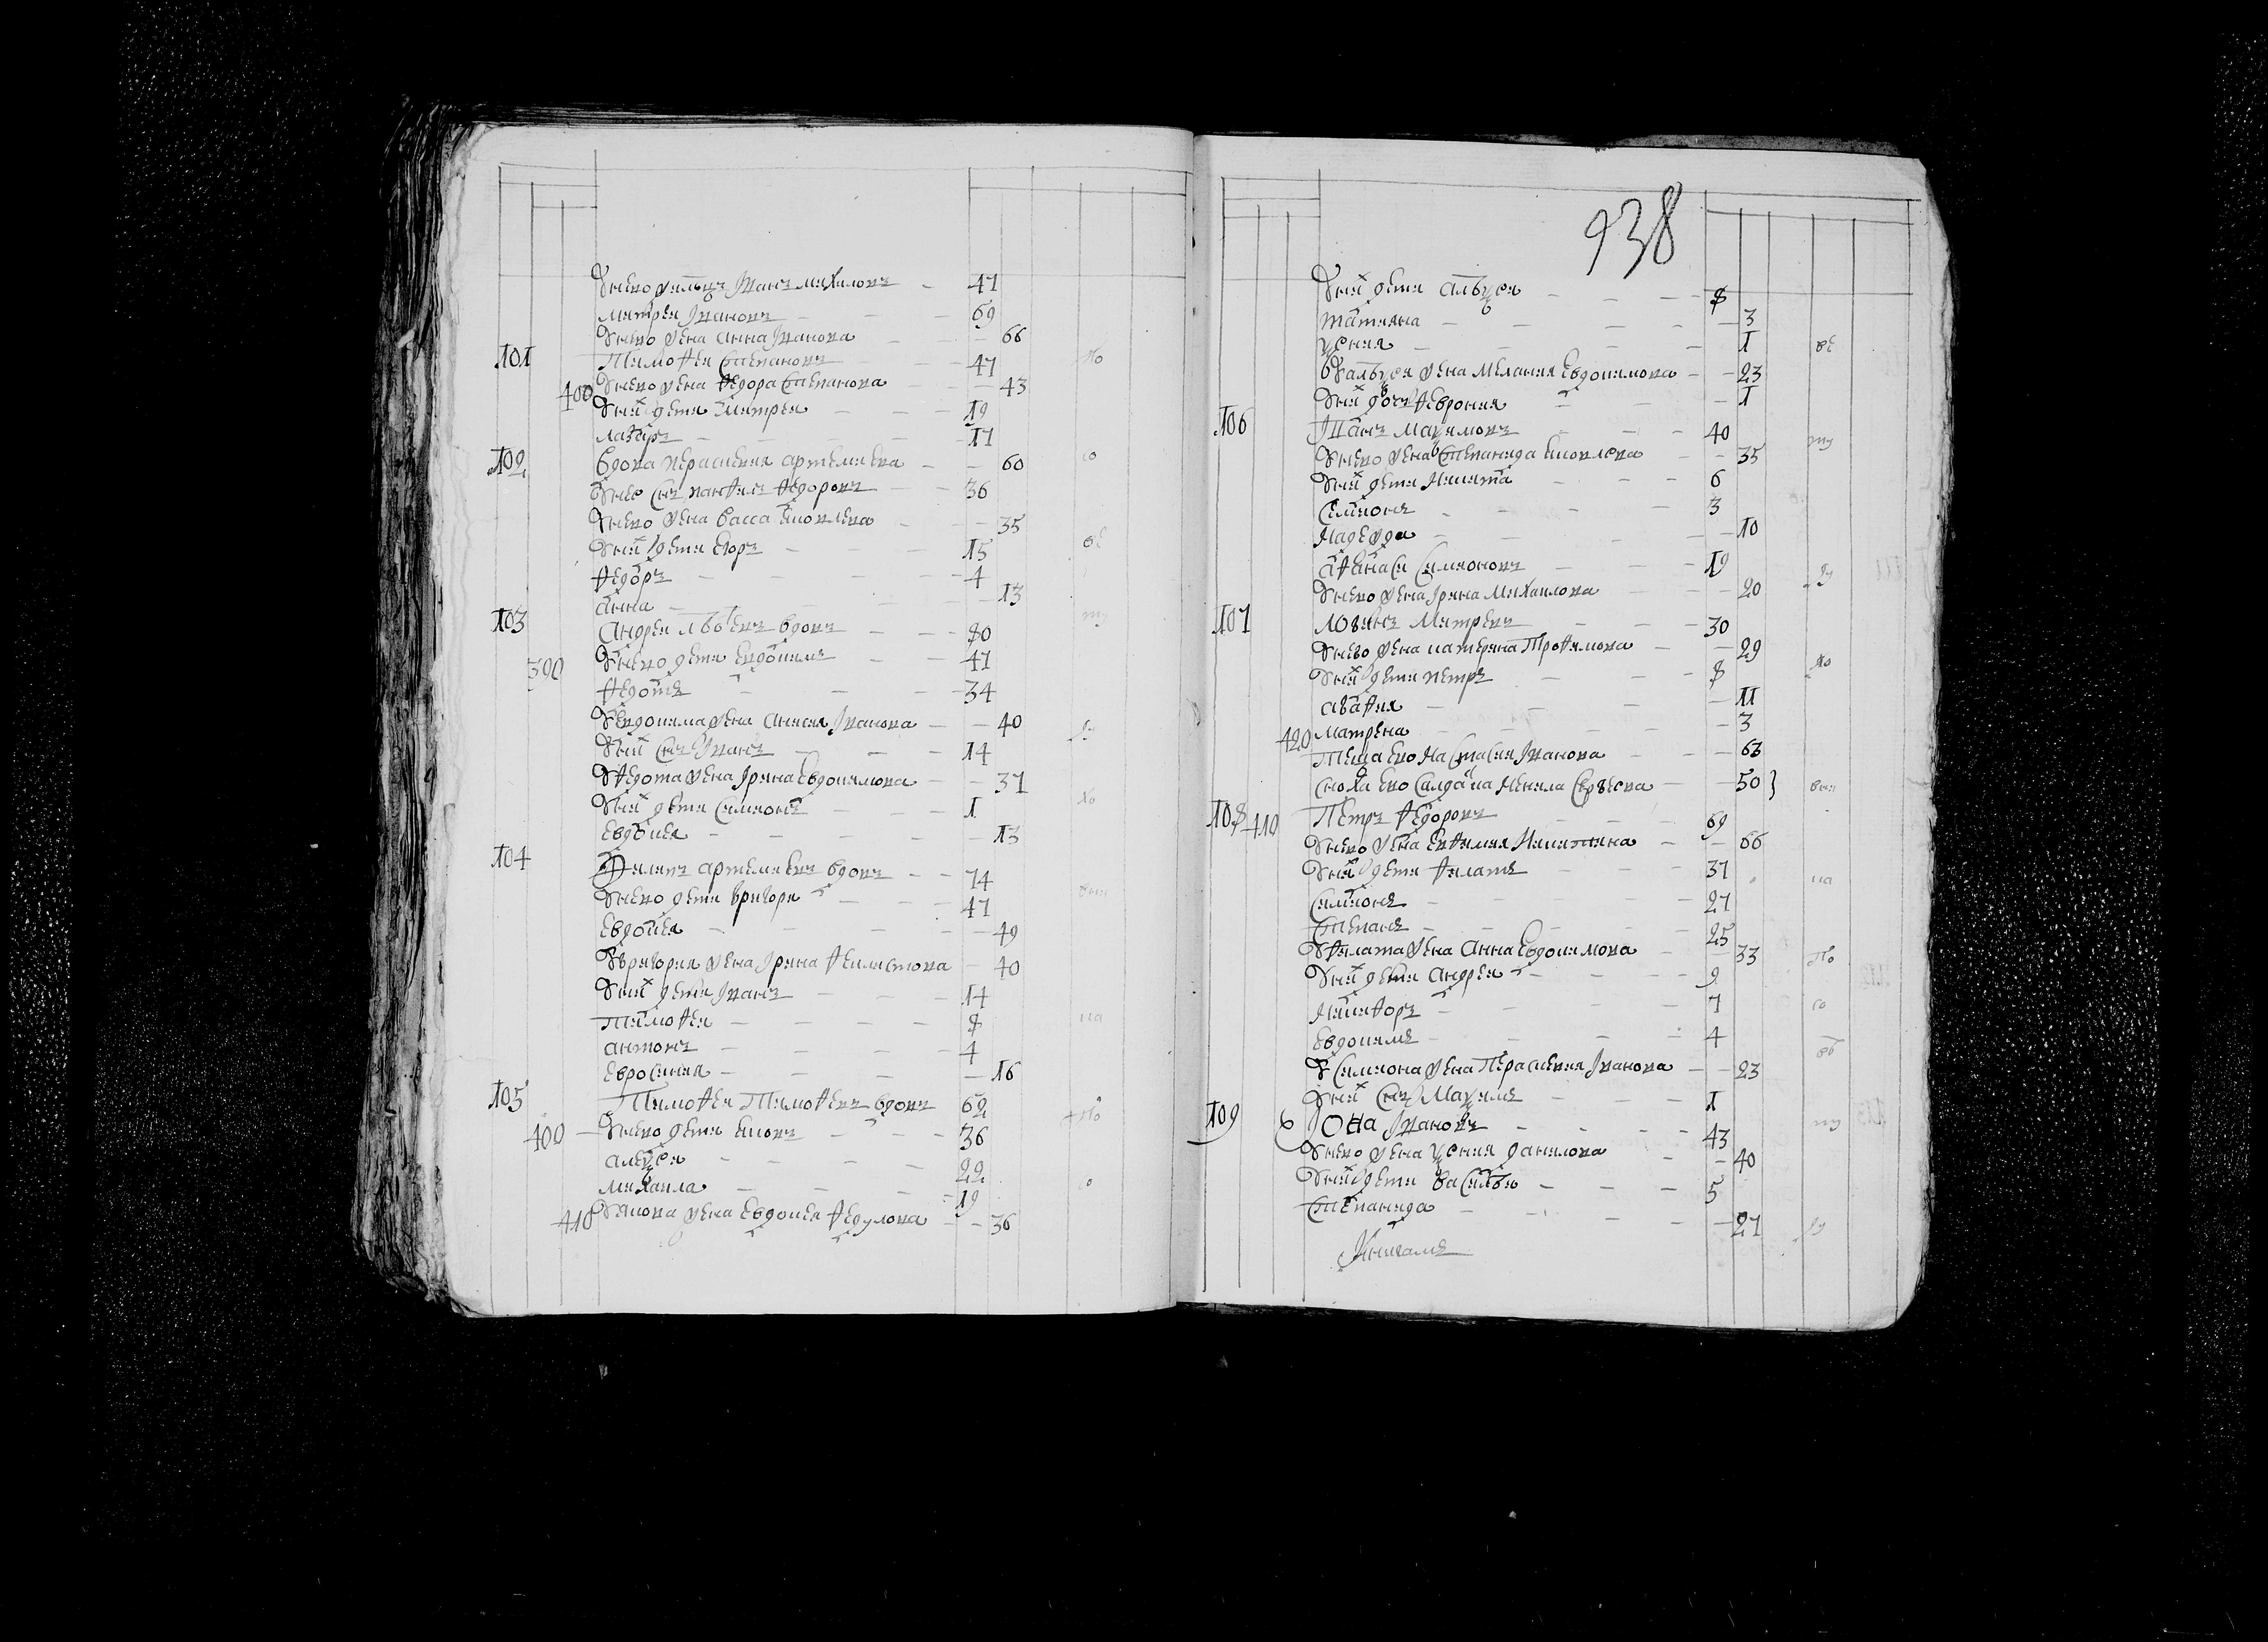 Унево зяльяз Iванъ михаиловъ 47
митреи Iвановъ 69
Унево жена анна Iванова 66
101 Тимофеи Степановъ 47
400 Унево жена Федора Степанова 43
Уних дети Дмитреи 19
лазарь 17
102 вдова Параскевия артемиева 60
Унее Снъ панфилъ Федоровъ 36
Унево жена васса яковлева 35
Уних дети Егоръ 15
Федоръ 4
анна 13
103 Андреи вдовъ 80
390 Унево дети Евдокимъ 47
Федотъ 34
УЕвдокима жена анисия Iванова 40
Уних Снъ Iванъ 14
УФедота жена Iрина Евдокимова 37
Уних дети Симионъ 1
Евдокея 13
104 Филипъ артемиевъ вдовъ 74
Унево дети григореи 47
Евдокея 49
Угригория жена Iрина Феклистова 40
Уних дети Iванъ 14
Тимофеи 8
антонъ 4
Евросиния 16
105 Тимофеи Тимофеевъ вдовъ 62
400 Унево дети яковъ 36
алексеи 22
михаила 19
410 Уякова жена Евдокея Федулова 36
938
Уних дети алексеи 8
татияна 3
ксения 1
Уалексея жена Мелания Евдокимова 23
Уних дочь Феврония 1
106 Iванъ Максимовъ 40
Унево жена Степанида яковлева 35
Уних дети Никита 6
Симионъ 3
Надежда 10
афанасеи Симионовъ 19
Унево жена Iрина Михаилова 20
107 Логинъ Митреевъ 30
Унево жена катерина Трофимова 29
Уних дети петръ 8
агафия 11
420 матрена 3
Теща ево Настасия Iванова 63
сноха ево Салдатка Ненила Сергеева 50
108 410 Петръ Федоровъ 69
Унево жена Евфимия Никитина 66
Уних дети Филатъ 37
Симионъ 27
Степанъ 25
УФилата жена Анна Евдокимова 33
Уних дети андреи 9
Никифоръ 7
Евдокимъ 4
УСимиона жена Параскевия Iванова 23
Уних Снъ Максимъ 1
109 Iона Iвановъ 43
Унево жена ксения данилова 40
Уних дети василеи 5
Степанида 27